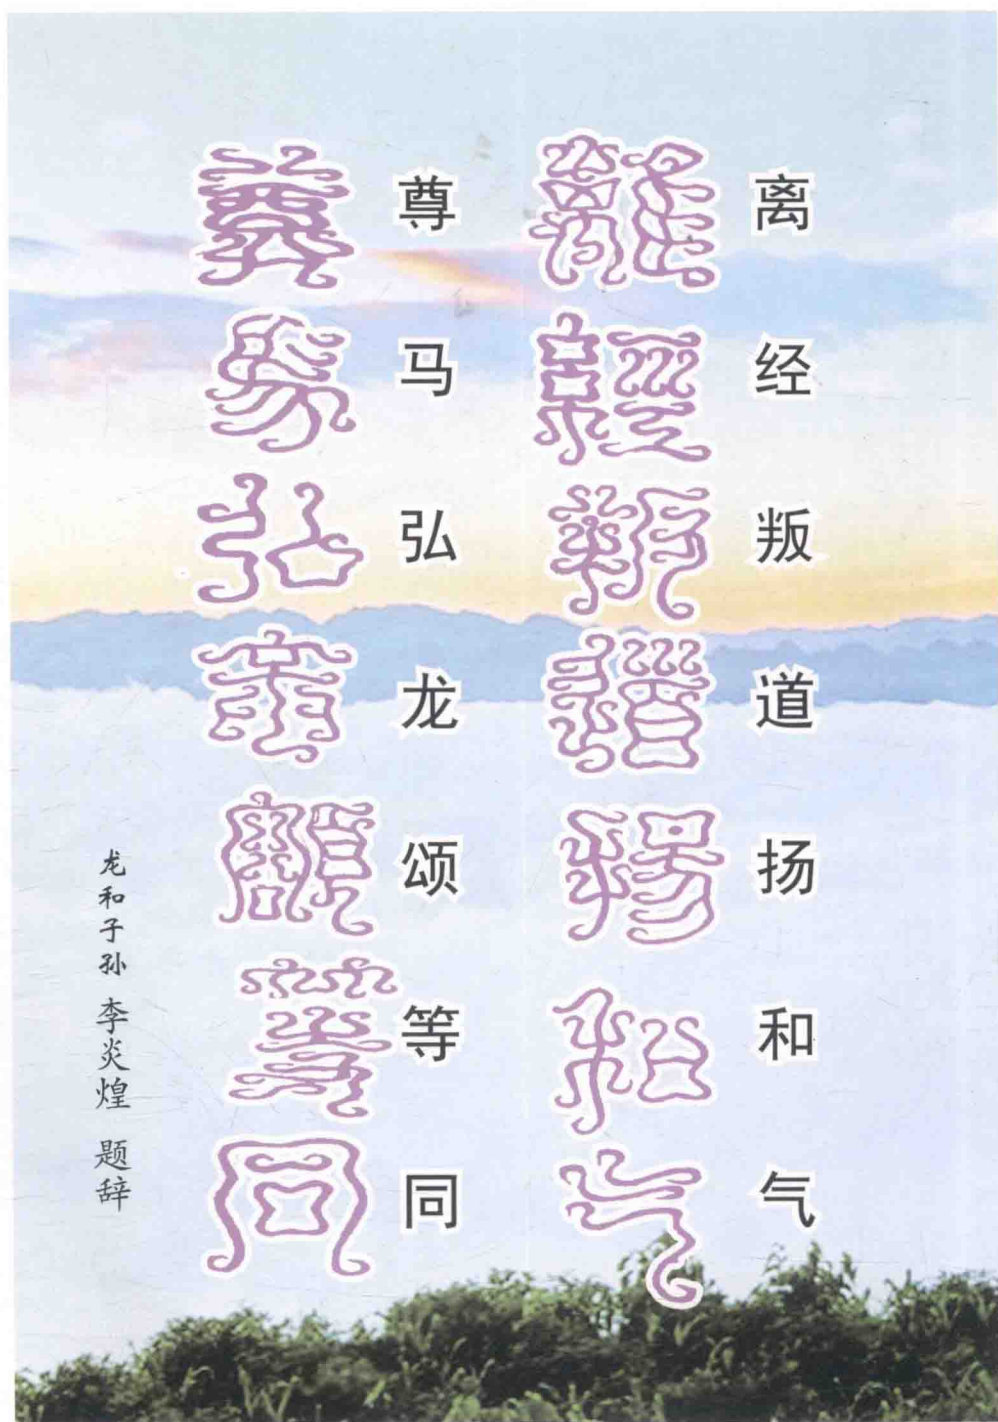 離經叛道揚和气
离经叛道扬和气
尊馬弘龍頌等同
尊马弘龙颂等同
龙和子孙 李炎煌 题辞